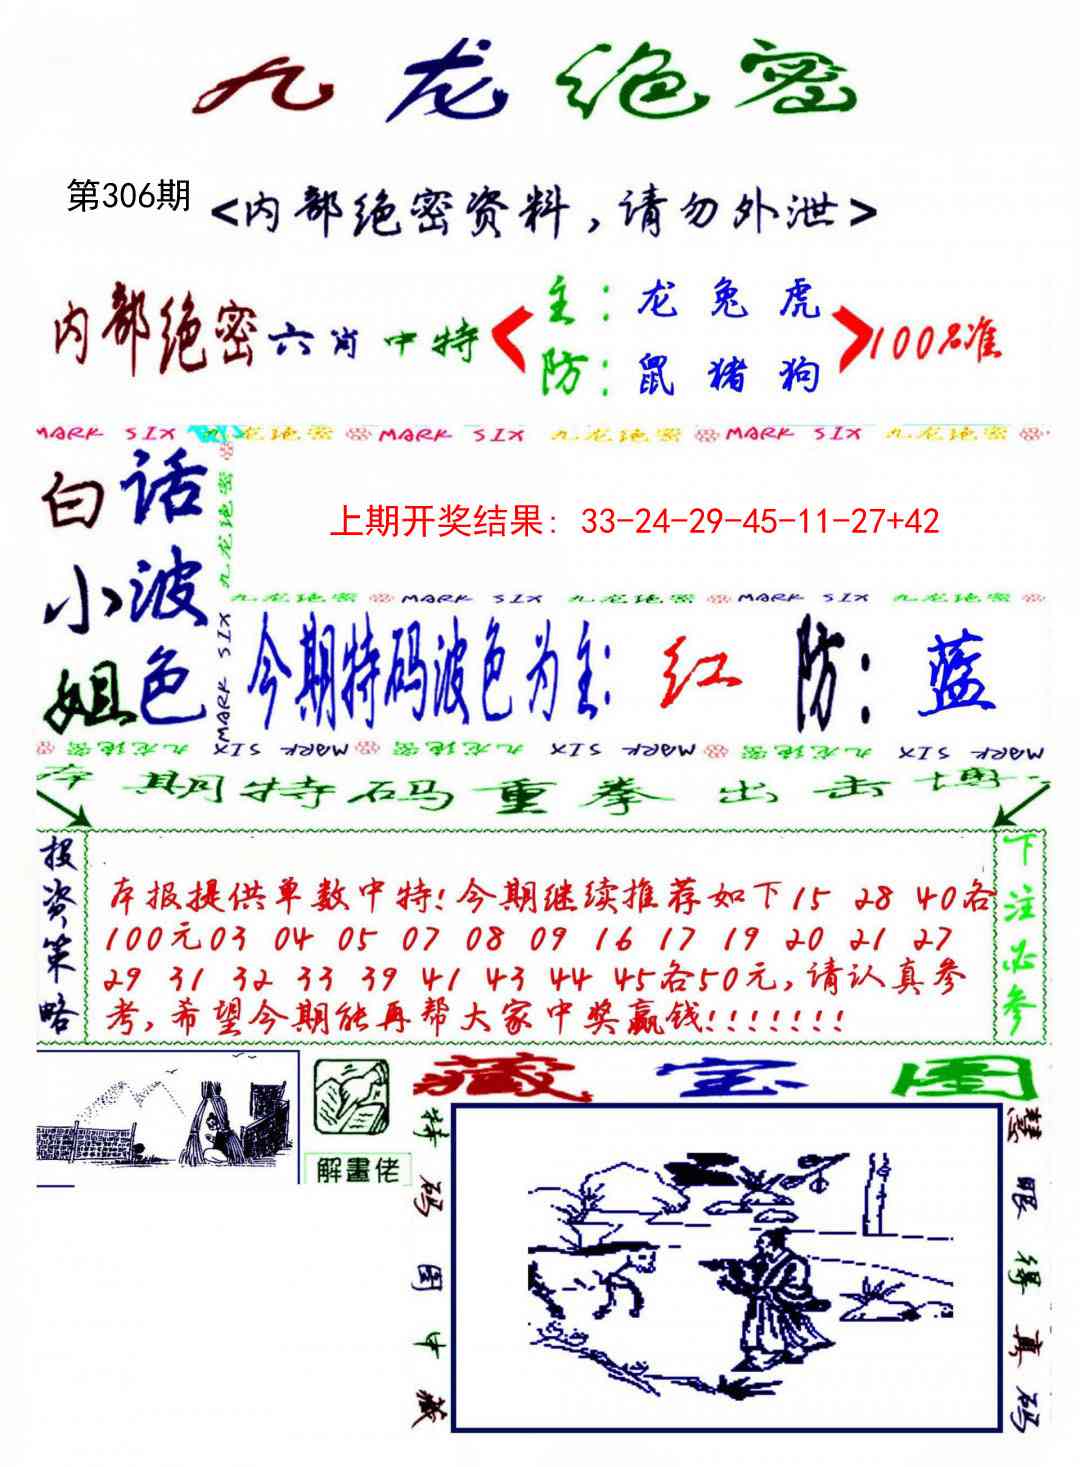 九龙绝密
第306期
<内部绝密资料,请勿外泄>
内部绝密六肖中特
主:龙 兔 虎
防:鼠 猪 狗
100%准
MARK SIX 九龙绝密 MARK SIX 九龙绝密 MARK SIX 九龙绝密
白话小波姐色
九龙绝密
MARK SIX
上期开奖结果: 33-24-29-45-11-27+42
九龙绝密 MARK SIX 九龙绝密 MARK SIX 九龙绝密
今期特码波色为主: 红 防: 蓝
九龙绝密 MARK SIX 九龙绝密 MARK SIX 九龙绝密 MARK SIX
本期特码重拳出击博
投资策略
本报提供单数中特!今期继续推荐如下15 28 40各
100元03 04 05 07 08 09 16 17 19 20 21 27
29 31 32 33 39 41 43 44 45各50元,请认真参
考,希望今期能再帮大家中奖赢钱!!!!!!!
下注必参
解畫佬
藏宝图
特码图中藏
慧眼得真码